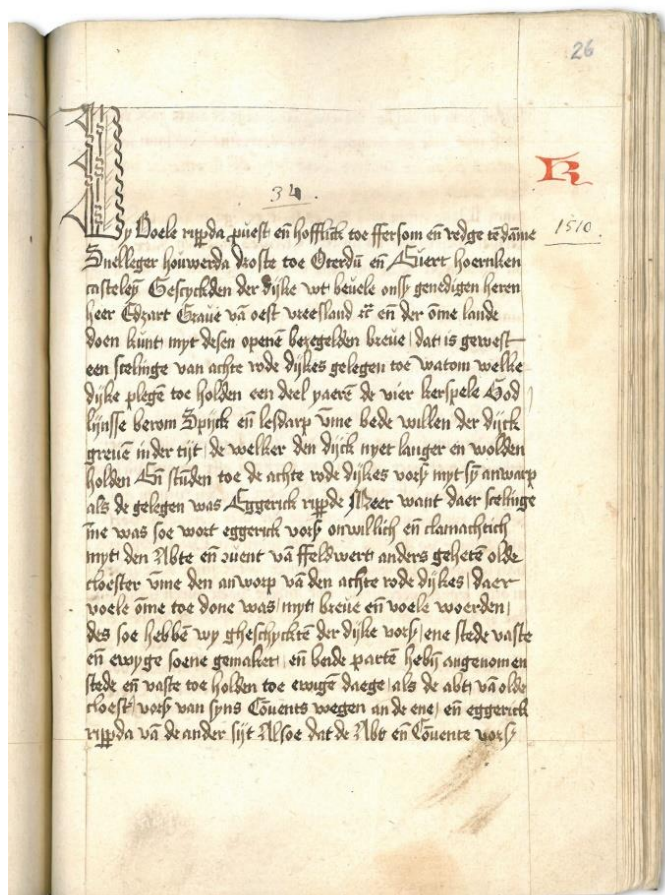 26
R
34.
1510.
Wy Boele rippda puest en̄ hofflinck toe ffersom en̄ redge te dāme
Snelleger houwerda droste toe Oterdū en̄ Siert hoernken
casteleyn̄ Gescyckden der dijke wt beuele onss genedigen heren
heer Edzart Graue vā oest vreesland en̄ der ōme lande
doen kunt myt desen openē bezegelden breue dat is gewest
een scelinge van achte rode dijkes gelegen toe watom welke
dijke plegē toe holden een deel yaerē de vier kerspele God
lijnsse berom Spijck en̄ lesdarp v̄me bede willen der dijck
greuē in der tijt de welker den dijck nyet langer en wolden
holden En̄ stūden toe de achte rode dijkes vors myt sȳ anwarp
als de gelegen was Eggerick rippde Meer want daer scelinge
īne was soe wort eggerick vors onwillich en̄ clamachtich
myt den Abte en̄ ɔuent vā ffeldwert anders gehetē olde
cloester v̄me den anworp vā den achte rode dijkes daer
voele ōme toe done was myt breue en̄ voele woerden
des soe hebbē wy gheschycktē der dijke vors ene stede vaste
en̄ ewyge soene gemaket en̄ beide partē hebn̄ angenomen
stede en̄ vaste toe holden toe ewigē daege als de abt vā olde
cloest vors van syns Cōuents wegen an de ene en̄ eggerick
rippda vā de ander sijt Alsoe dat de Abt en̄ Couente vors